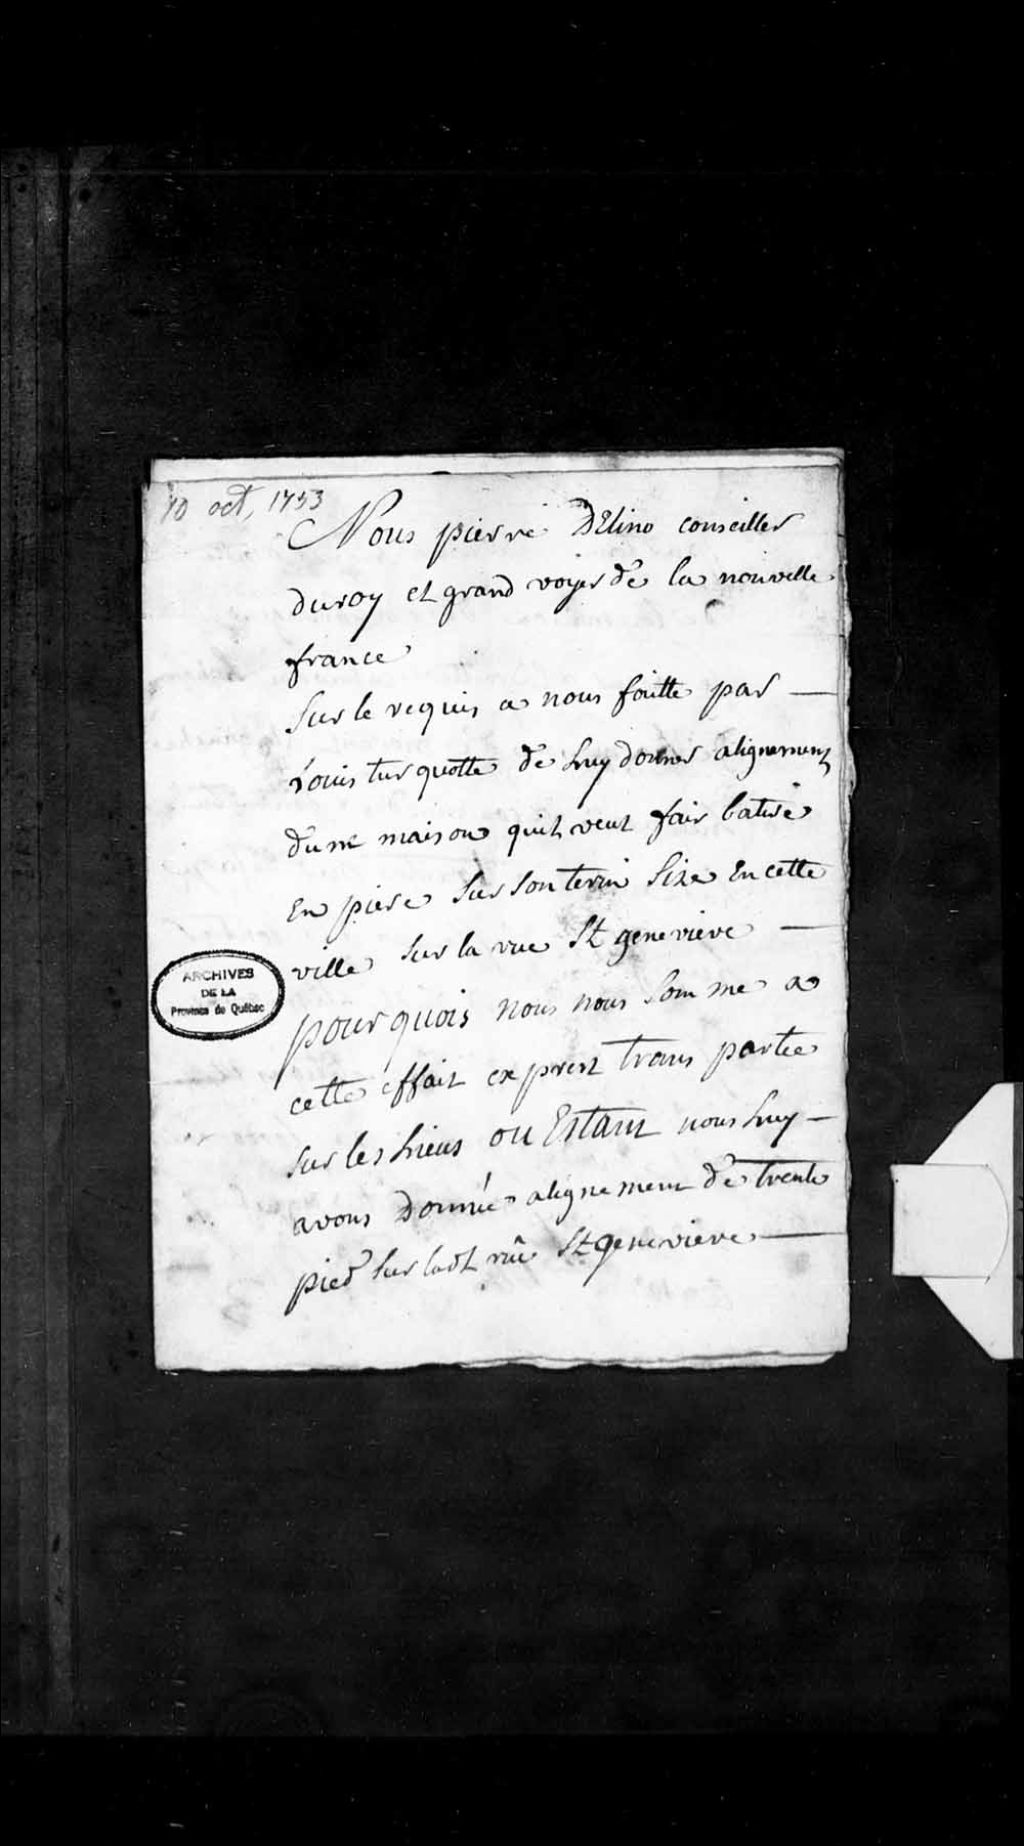 10 oct, 1753
Nous pierre DElino conseiller
du roy et grand voyer de la nouvelle
france
Sur le requis a nous faitte par —
Louis turquotte de Luy donner alignement
dune maison quil veut fair batire
En piere sur son terin Size En cette
ville sur la rue St genevieve —
pourquois nous nous somme a
cette effait exprest trans partee
sur les Lieus ou Estant nous Luy —
avons Donnée alignement de trente
pied sur ladt rüe St genevieve —
ARCHIVES
DE LA
Province de Québec